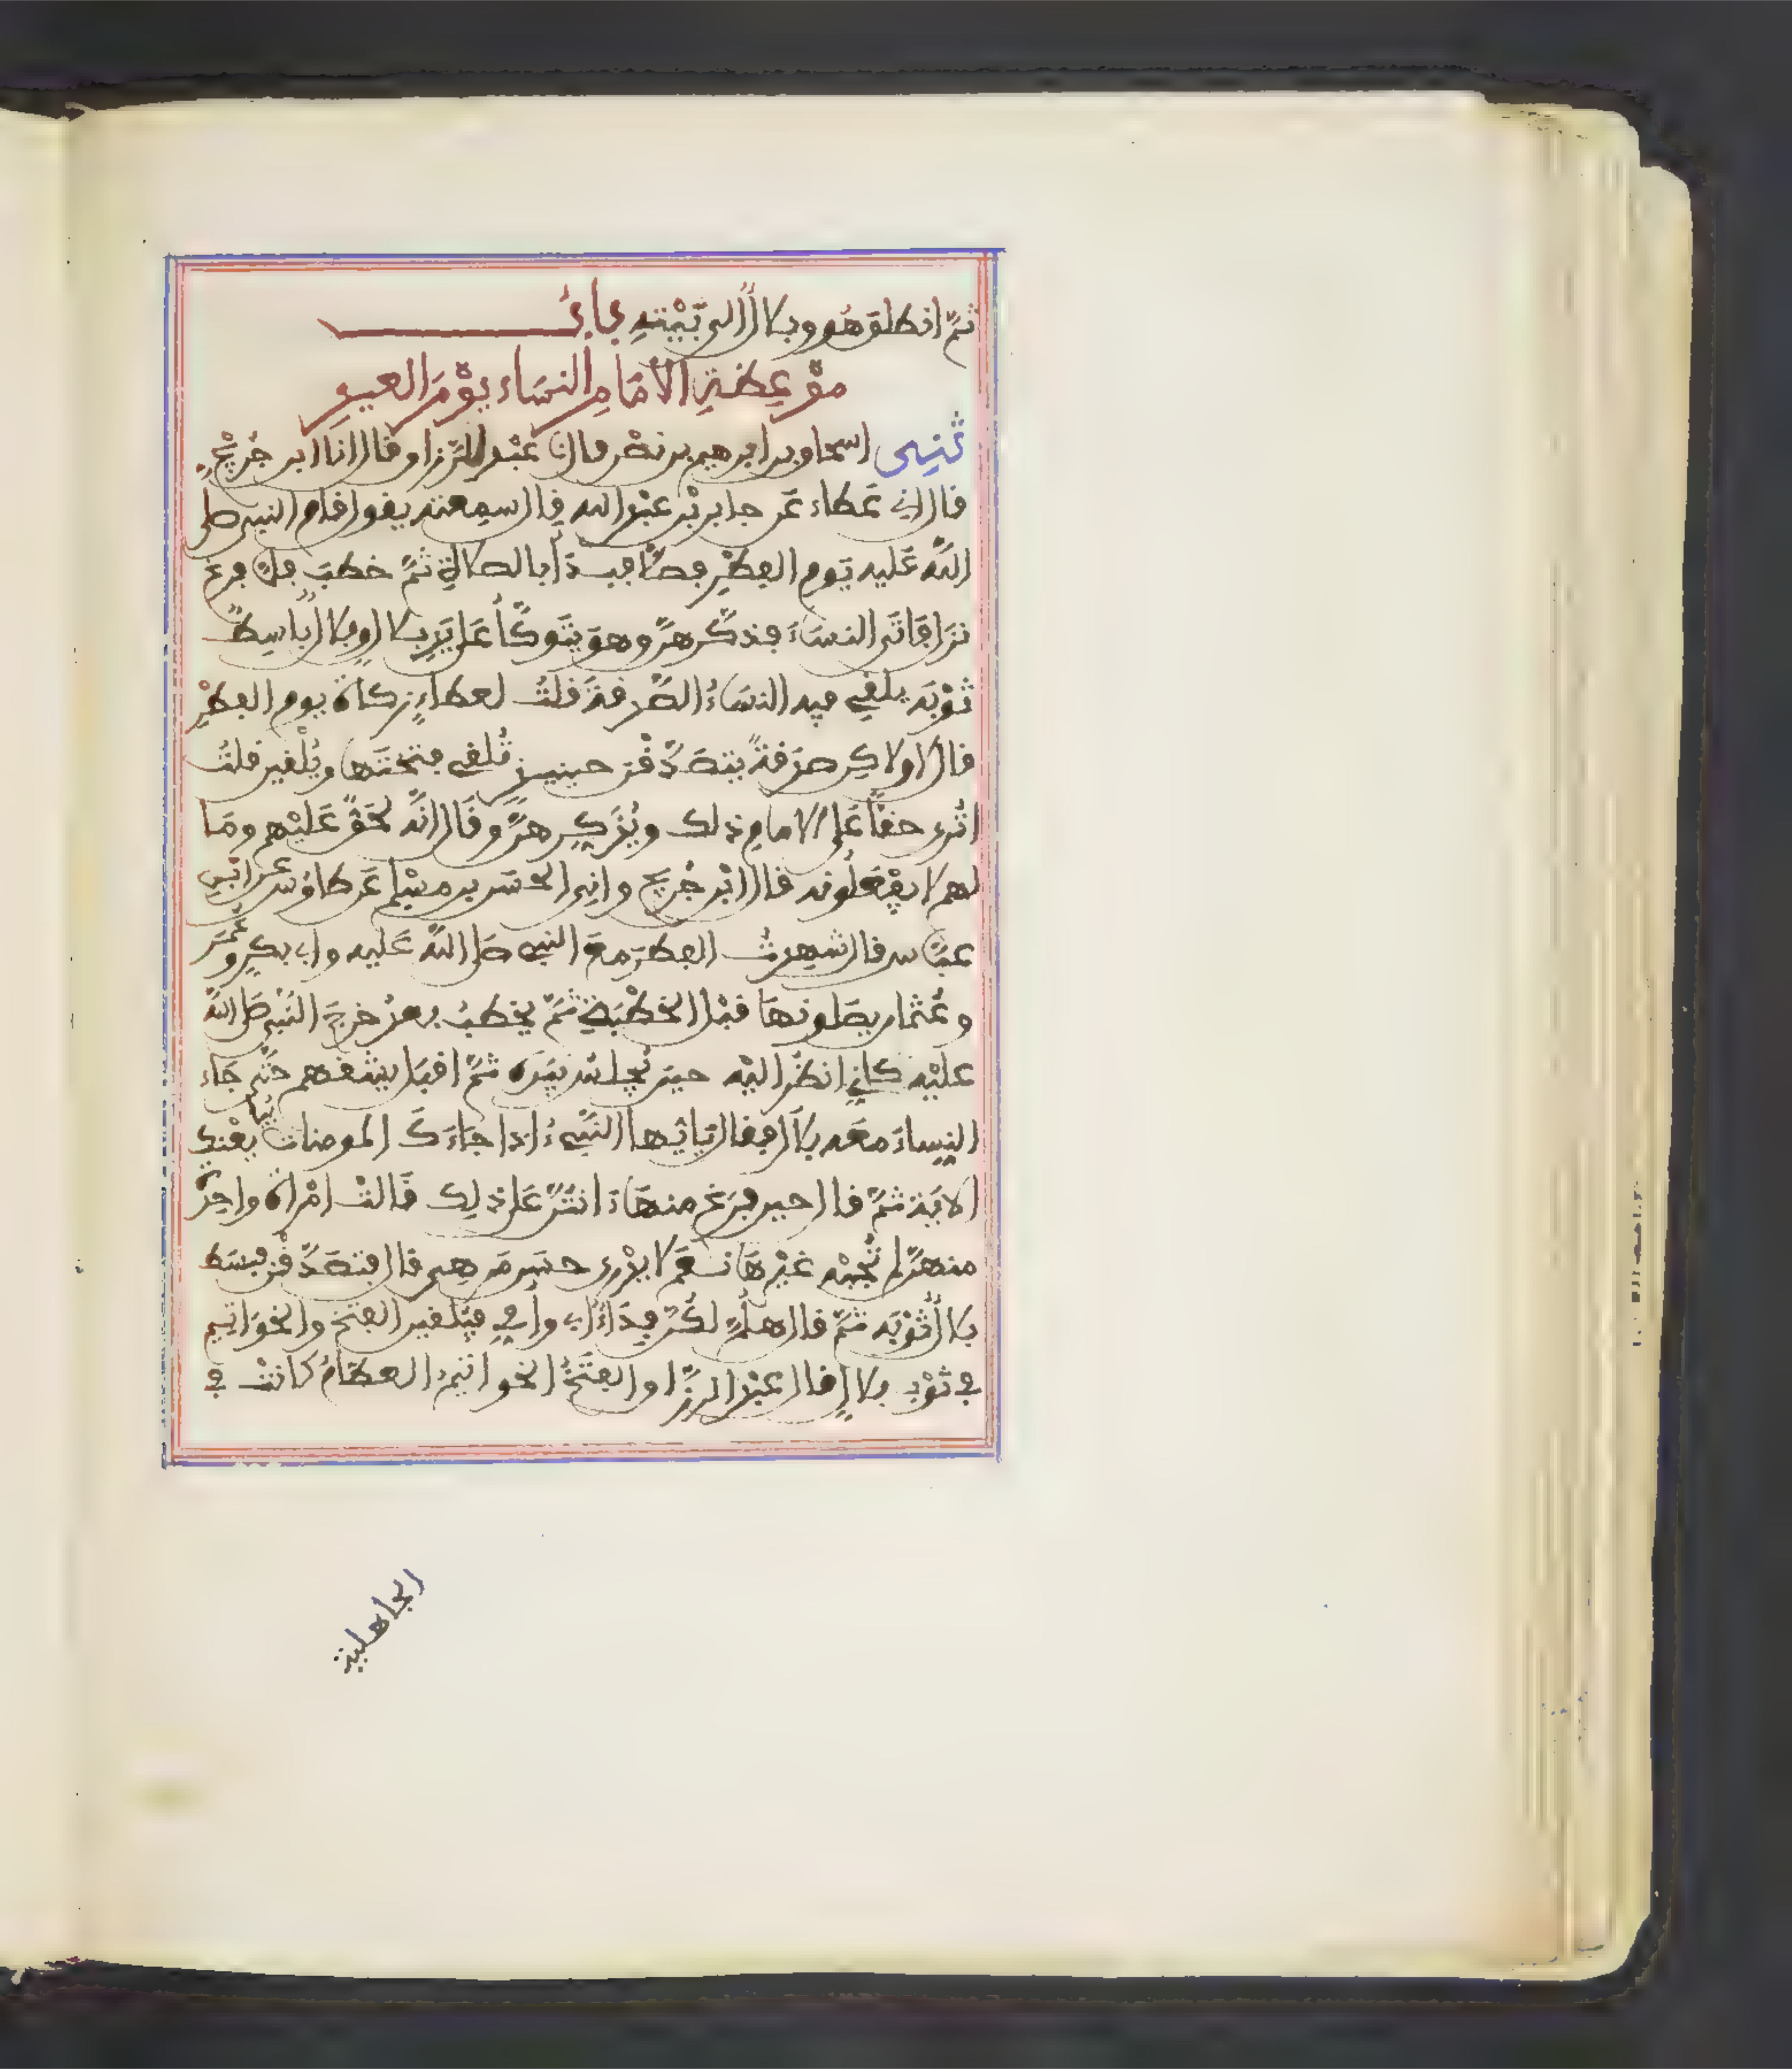 ثمَّ انطلق هُو وبلالٌ الى بَيْتهِ بابُ
موْعِظةِ الاِمَامِ النسَاء يوْمَ العيدِ
ثنِى اسحاق بن ابرهيم بن نصْر قال نا عبْد الرَّزاق قال انا ابن جُريْجٍ
قال انى عَطاء عَن جابر بْن عبْد الله قال سمِعته يقول قام النبى صلى
اللَّه عَليه يَوم الفِطْرِ فصَلَّى فبدَأ بالصلاةِ ثمَّ خطبَ فلمَّا فرغ
نزَل فَاتَى النسَاءَ فذكَّرهنَّ وهوَ يتَوكَّأُ عَلى يَدِ بلالٍ وبلالٌ باسِطٌ
ثوْبَه يلقِى فيه النسَاءُ الصَّدقةَ قلتُ لعطاءٍ زكاةَ يوم الفِطْرِ
قال لا ولاكِن صدَقةً يتصَدَّقْن حينيذٍ تُلقِى فتختَها ويُلْقين قلتُ
اتُرى حقاً عَلى الامامِ ذلك ويُذَكِّرهنَّ وقَال انَّه لحَقٌّ عَليْهم ومَا
لهم لا يفْعَلُونه قال ابْن جُريج وانِى الحَسَن بن مسْلم عَن طاوُس عن ابْن
عبَّاس قال شهِدتُ الفِطرَ معَ النبى صَلى اللَّه عَليه وابى بكرٍ وعُمَر
وعُثمان يصَلونهَا قبْل الخطْبَةِ ثمَّ يخطبُ بعدُ خرجَ النَّبى صَلى اللَّه
عليْه كانِى انظُر اليْه حينَ يُجلسُ بيَدهِ ثمَّ اقبَل يشُقهم حتَّى جَاء
النِساءَ معَه بلالٌ فقال يَايُّها النَّبىءُ اذا جَاءَكَ المومنات يُبايعْنك
الايَة ثمَّ قال حين فرَغ منهَا ءَانتُنَّ عَلى ذلِك قَالتْ امْراةٌ واحِدةٌ
منهنَّ لم تُجبْه غيْرهَا نعَمْ لا يدْرى حسَن مَن هِى قال فتصَدَّقْن فبسَط
بلالٌ ثوْبَه ثمَّ قال هلُمَّ لكُنَّ فِدَاءٌ ابى وأمِى فيُلقين الفتَخ والخوَاتيم
فى ثوْب بلالٍ قال عبْد الرزَّاق والفتَخُ الخواتيمُ العظامُ كانتْ فى
الجاهلية